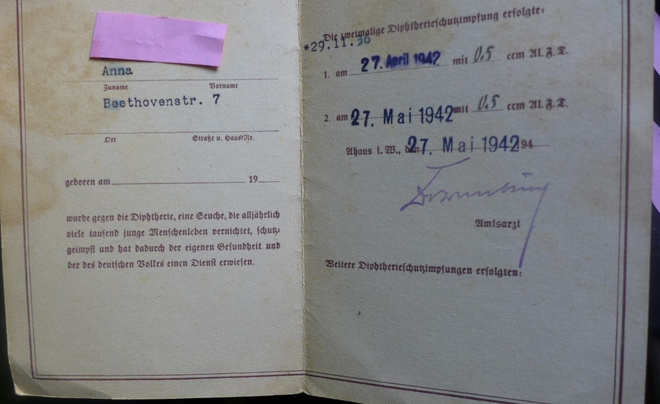 Anna
Zuname Vorname
Beethovenstr. 7
Ort Straße u. Haus-Nr.
geboren am 19
wurde gegen die Diphtherie, eine Seuche, die alljährlich
viele tausend junge Menschenleben vernichtet, schutz-
geimpft und hat dadurch der eigenen Gesundheit und
der des deutschen Volkes einen Dienst erwiesen.
Die zweimalige Diphtherieschutzimpfung erfolgte:
*29.11.36
1. am 27. April 1942 mit 0.5 ccm Al. F. T.
2. am 27. Mai 1942 mit 0.5 ccm Al. F. T.
Ahaus i. W., den 27. Mai 1942 94
Amtsarzt
Weitere Diphtherieschutzimpfungen erfolgten: